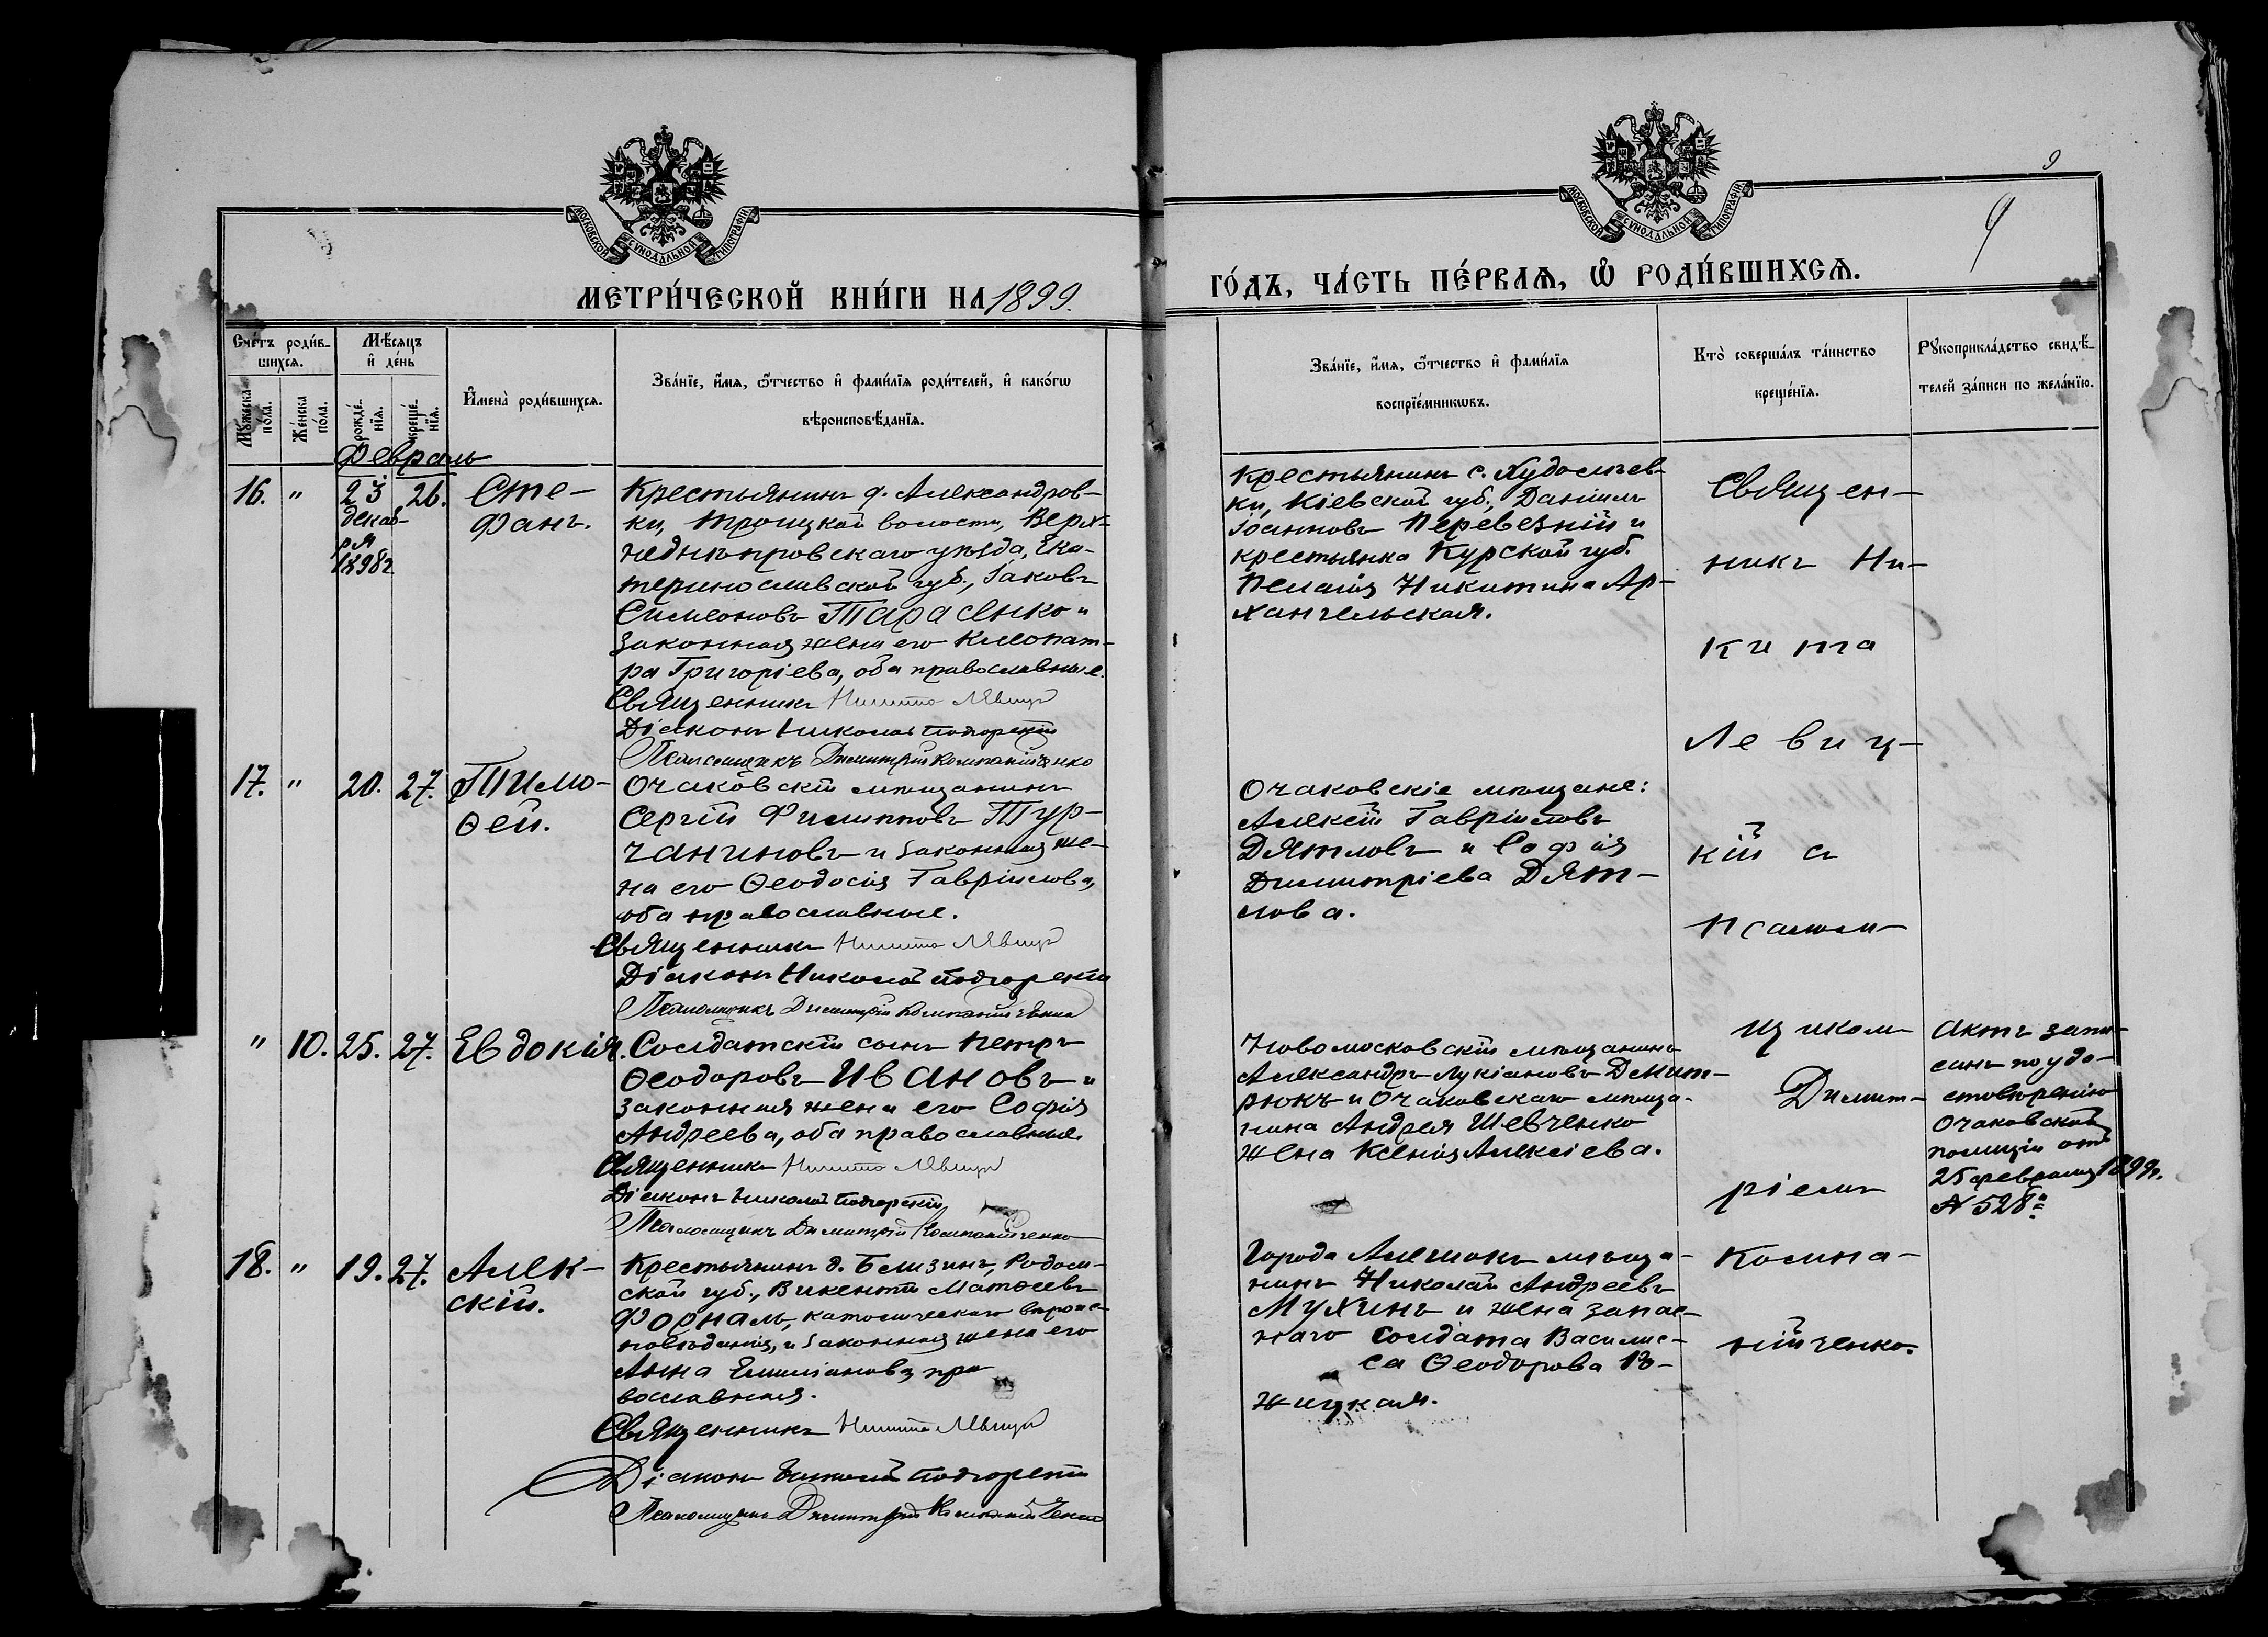 9
9
МОСКОВСКОЙ СѴНОДАЛЬНОЙ ТИПОГРАФІИ
МОСКОВСКОЙ СѴНОДАЛЬНОЙ ТИПОГРАФІИ
МЕТРИ́ЧЕСКОЙ КНИ́ГИ НА 1899.
ГО́ДЪ, ЧА́СТЬ ПЕ́РВАѦ, Ѡ҆ РОДИ́ВШИХСѦ.
Сче́тъ роди́в-
шихсѧ.
Мꙋ́жеска по́ла.
Же́нска по́ла.
Мѣ́сѧцъ
и҆ де́нь
рожде́-
нїѧ.
креще́-
нїѧ.
И҆мена̀ роди́вшихсѧ.
Зва́нїе, и҆́мѧ, ѻ҆́тчество и҆ фами́лїѧ роди́телей, и҆ како́гѡ
вѣроисповѣ́данїѧ.
Зва́нїе, и҆́мѧ, ѻ҆́тчество и҆ фами́лїѧ
воспрїе́мникѡвъ.
Кто̀ соверша́лъ та́инство
креще́нїѧ.
Рꙋкоприкла́дство свидѣ́-
телей за́писи по жела́нїю.
Февраль
16. " 23 26. Сте-
декаб-
ря
1898 г
фанъ.
Крестьянинъ д. Александров-
ки, Троицкой волости, Верх-
неднѣпровскаго уѣзда, Ека-
теринославской губ., Іаковъ
Симеоновъ Тарасенко и
законная жена его Клеопат-
ра Григоріева, оба православные.
Священникъ Никита Левицк
Діаконъ Николай Подгорскій
Псаломщикъ Димитрій Компанійченко
Крестьянинъ с.
ки, Кіевской губ., Даніилъ
Іоанновъ Перевезній и
крестьянка Курской губ.
Пелагія Никитина Ар-
хангельская.
17. " 20. 27. Тимо-
ѳей.
Очаковскій мѣщанинъ
Сергій Филипповъ Тур-
чаниновъ и законная же-
на его Ѳеодосія Гавріилова,
оба православные.
Священникъ Никита Левицк
Діаконъ Николай Подгорскій
Псаломщикъ Димитрій Компанійченко
Очаковскіе мѣщане:
Алексій Гавріиловъ
Дятловъ и Софія
Димитріева Дят-
лова.
" 10. 25. 27. Евдокія.
Солдатскій сынъ Петръ
Ѳеодоровъ Ивановъ и
законная жена его Софія
Андреева, оба православные.
Священникъ Никита Левицк
Діаконъ Николай Подгорскій
Псаломщикъ Димитрій Компанійченко
Новомосковскій мѣщанинъ
Александръ Лукіановъ Дмит-
рюкъ и Очаковскаго мѣща-
нина Андрея Шевченко
жена Ксенія Алексіева.
Актъ запи-
санъ по удо-
стовѣренію
Очаковской
полиціи отъ
25 февраля 1899 г.
№ 528.
18. " 19. 27. Алек-
сій.
Крестьянинъ д. Бензинъ, Родом-
ской губ., Викентій Матѳеевъ
Форналь, католическаго вѣроис-
повѣданія, и законная жена его
Анна Емиліанова, пра
вославная.
Священникъ Никита Левицк
Діаконъ Николай Подгорскій
Псаломщикъ Димитрій Компанійченко
Города Алешокъ мѣща-
нинъ Николай Андреевъ
Мухинъ и жена запас-
наго солдата Васили-
са Ѳеодорова
жицкая.
Священ-
никъ Ни-
кита
Левиц-
кій съ
псалом-
щикомъ
Димит-
ріемъ
Компа-
нійченко.